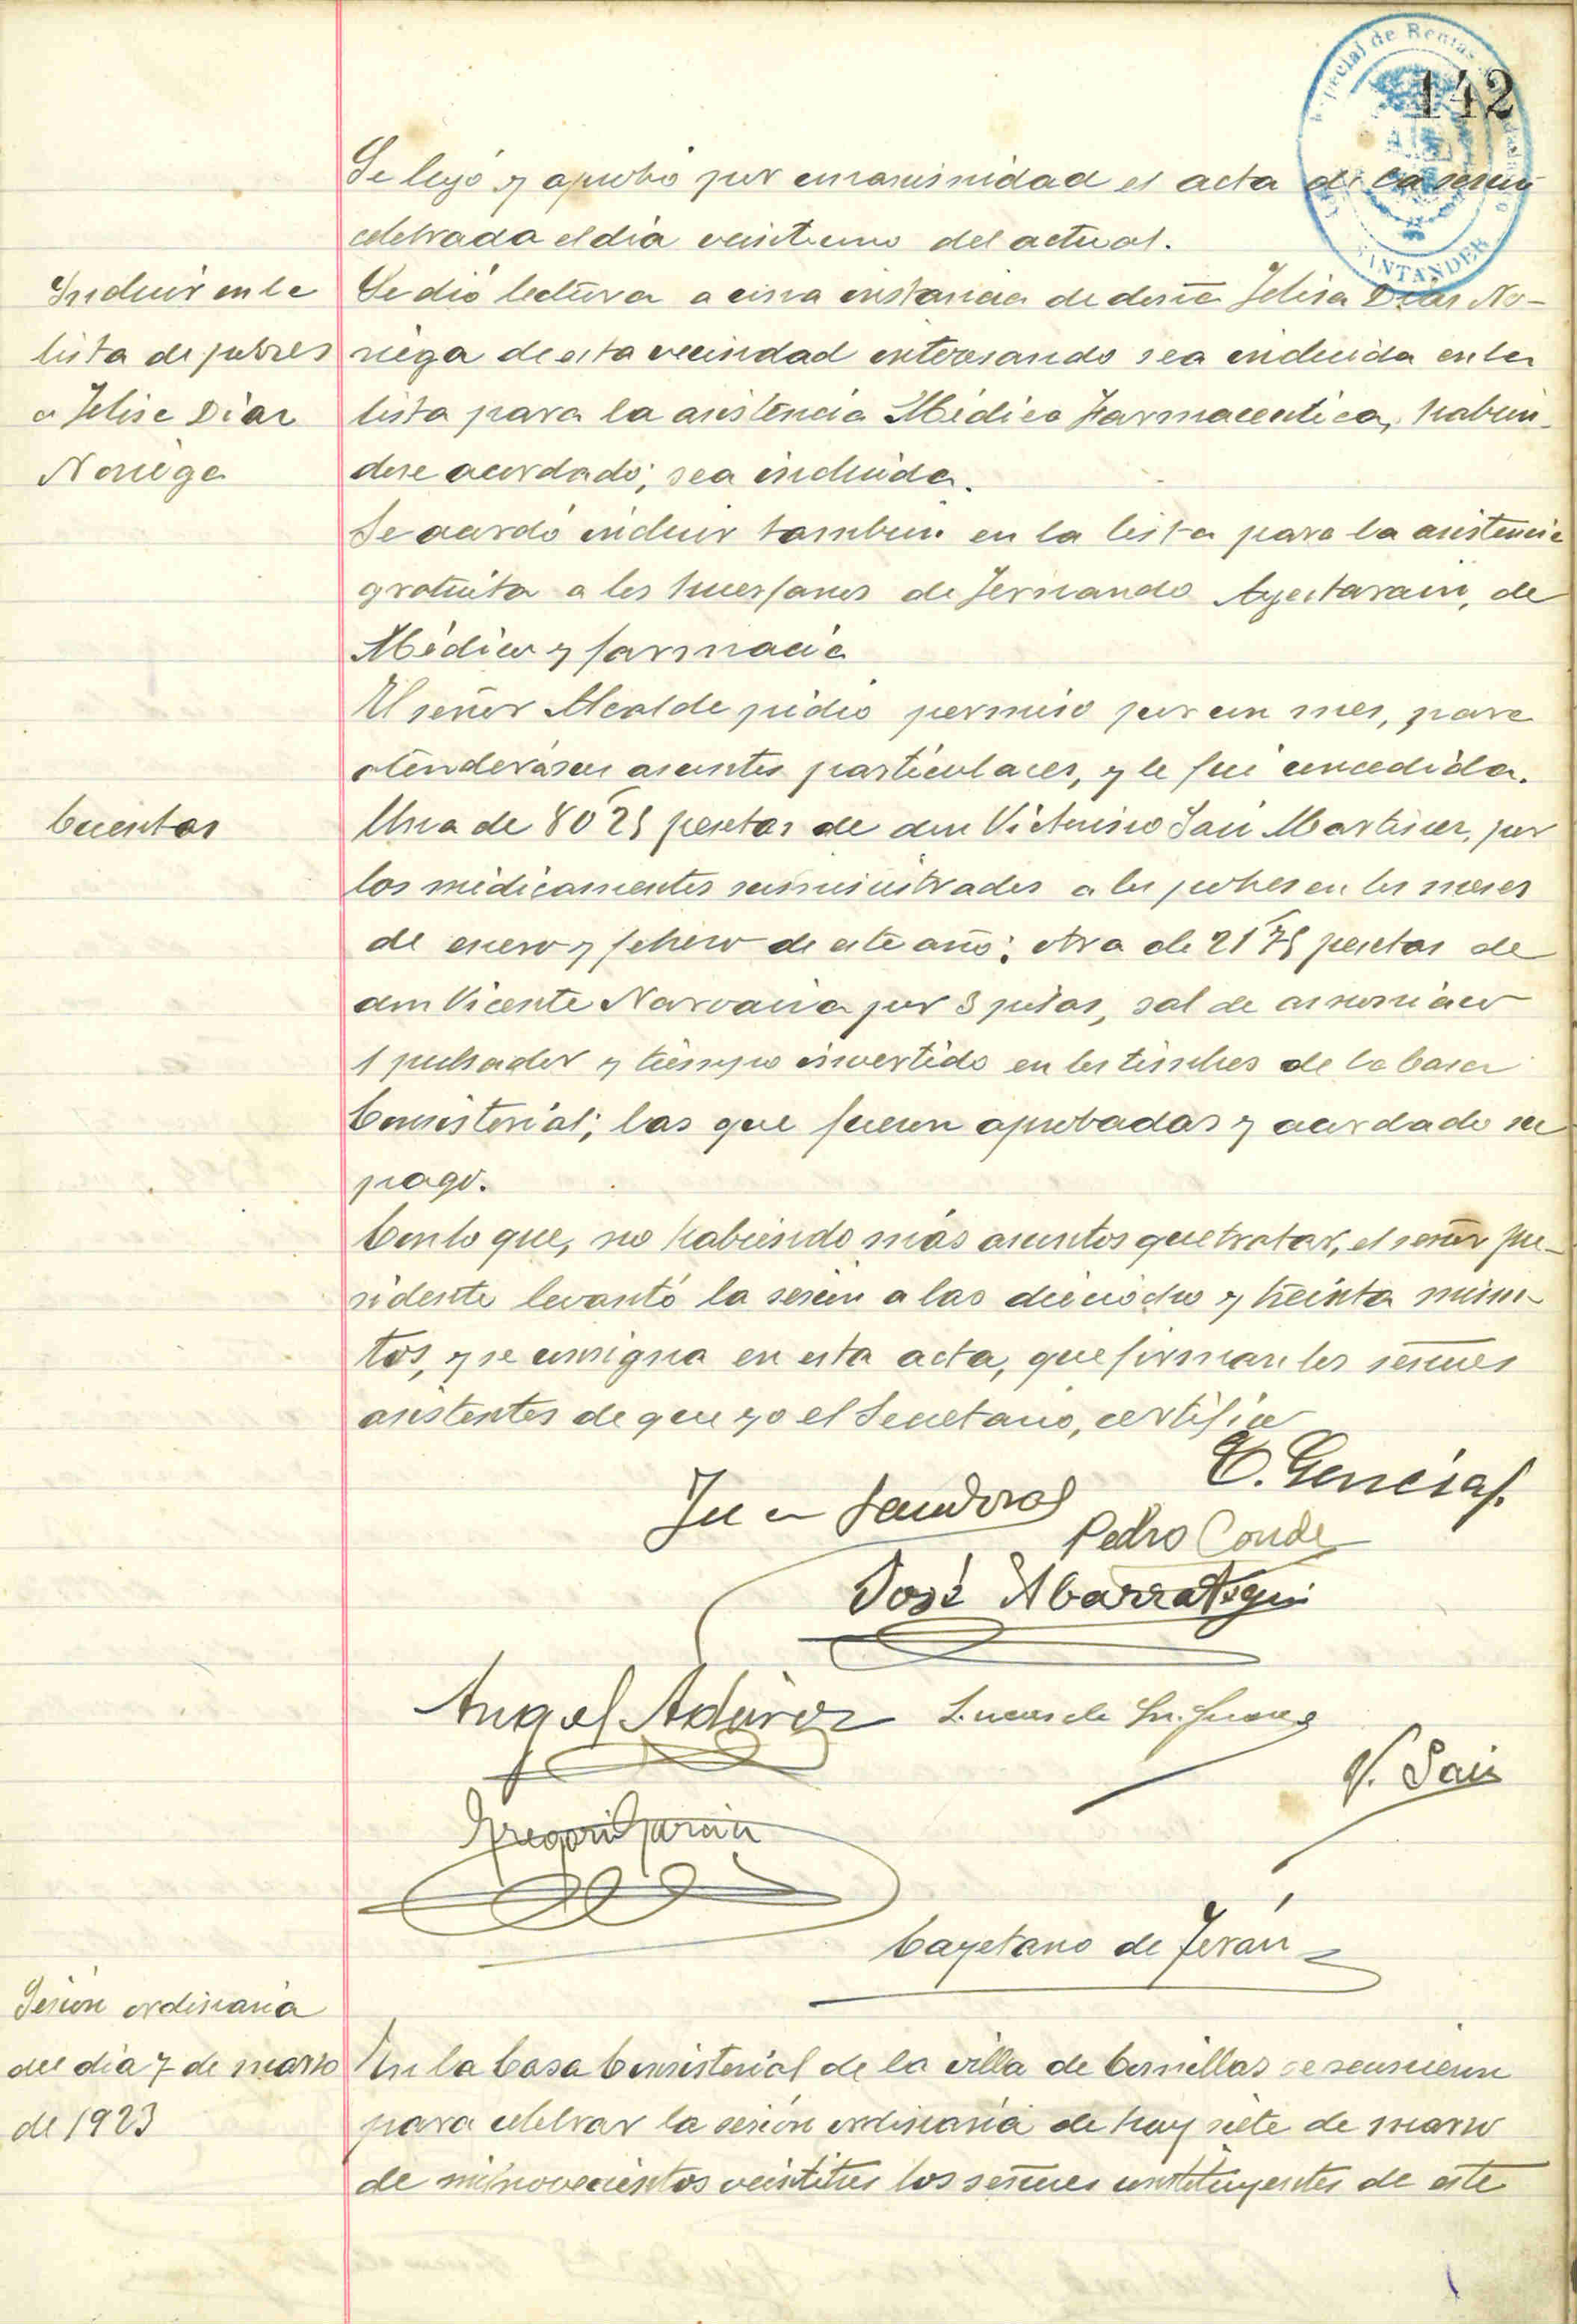 142
Especial de Rentas
SANTANDER
Se leyó y aprobó por unanimidad el acta de la sesión
celebrada el día veintiuno del actual.
Incluir en la
lista de pobres
a Felisa Díaz
Noriega
Se dió lectura a una instancia de doña Felisa Díaz No-
riega de esta vecindad interesando sea incluida en la
lista para la asistencia Médico Farmaceutica, habien-
dose acordado; sea incluida.
Se acordó incluir tambien en la lista para la asistencia
gratuita a los huerfanos de Fernando Ayestarain, de
Médico y farmacia
El señor Alcalde pidió permiso por un mes, para
atender á sus asuntos particulares, y le fué concedida.
Cuentas
Una de 80 25 pesetas de don Victorino San Martin, por
los medicamentos suministrados a los pobres en los meses
de enero y febrero de este año; otra de 21 75 pesetas de
don Vicente Narvaiza por 3 pilas, sal de amoniaco
1 pulsador y tiempo invertido en los timbres de la Casa
Consistorial; las que fueron aprobadas y acordado su
pago.
Con lo que, no habiendo más asuntos que tratar, el señor pre-
sidente levantó la sesión a las dieciocho y treinta minu-
tos, y se consigna en esta acta, que firman los señores
asistentes de que yo el Secretario, certifico
Juan Sandoval
Pedro Conde
José Abarrategui
Angel Adaroz
V. Saiz
Gregorio Garcia
Cayetano de Terán
Sesión ordinaria
del día 7 de marzo
de 1923
En la Casa Consistorial de la villa de Comillas se reunieron
para celebrar la sesión ordinaria de hoy siete de marzo
de mil novecientos veintitres los señores constituyentes de este